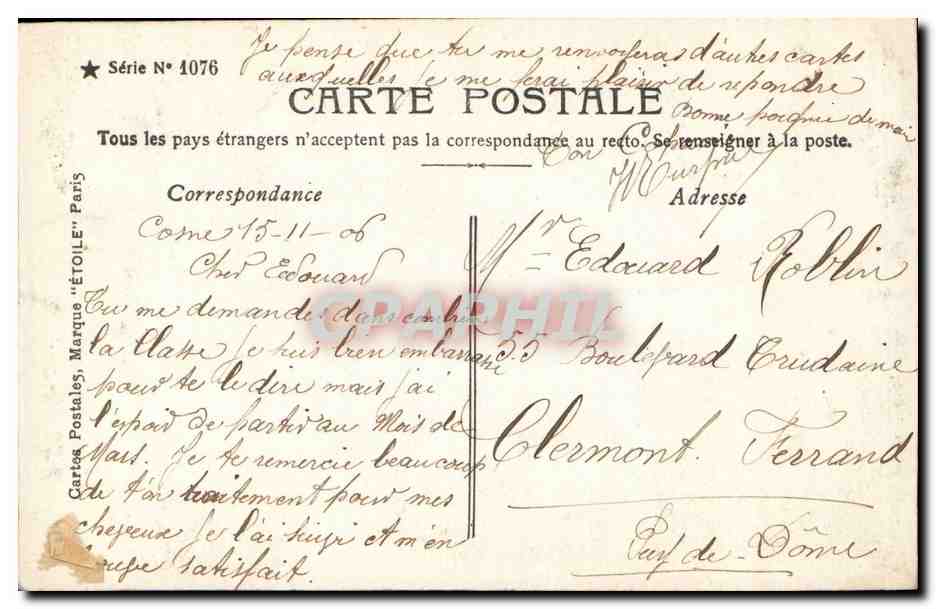 ★ Série N° 1076
Je pense que tu me renverras d'autres cartes
auxquelles je me ferai plaisir de repondre
Bonne poignée de main
Ton
CARTE POSTALE
Tous les pays étrangers n'acceptent pas la correspondance au recto. Se renseigner à la poste.
Correspondance
Cosne 15-11-06
Cher Edouard
Tu me demandes dans combien
la Classe je suis bien embarrassé
pour te le dire mais j'ai
l'espoir de partir au Mois de
Mars. Je te remercie beaucoup
de ton traitement pour mes
cheveux je l'ai suivi et m'en
trouve satisfait.
Adresse
Mr Edouard Roblin
55 Boulevard Trudaine
Clermont Ferrand
Puy de Dôme
Cartes Postales, Marque "ÉTOILE" Paris
CPAPHIL